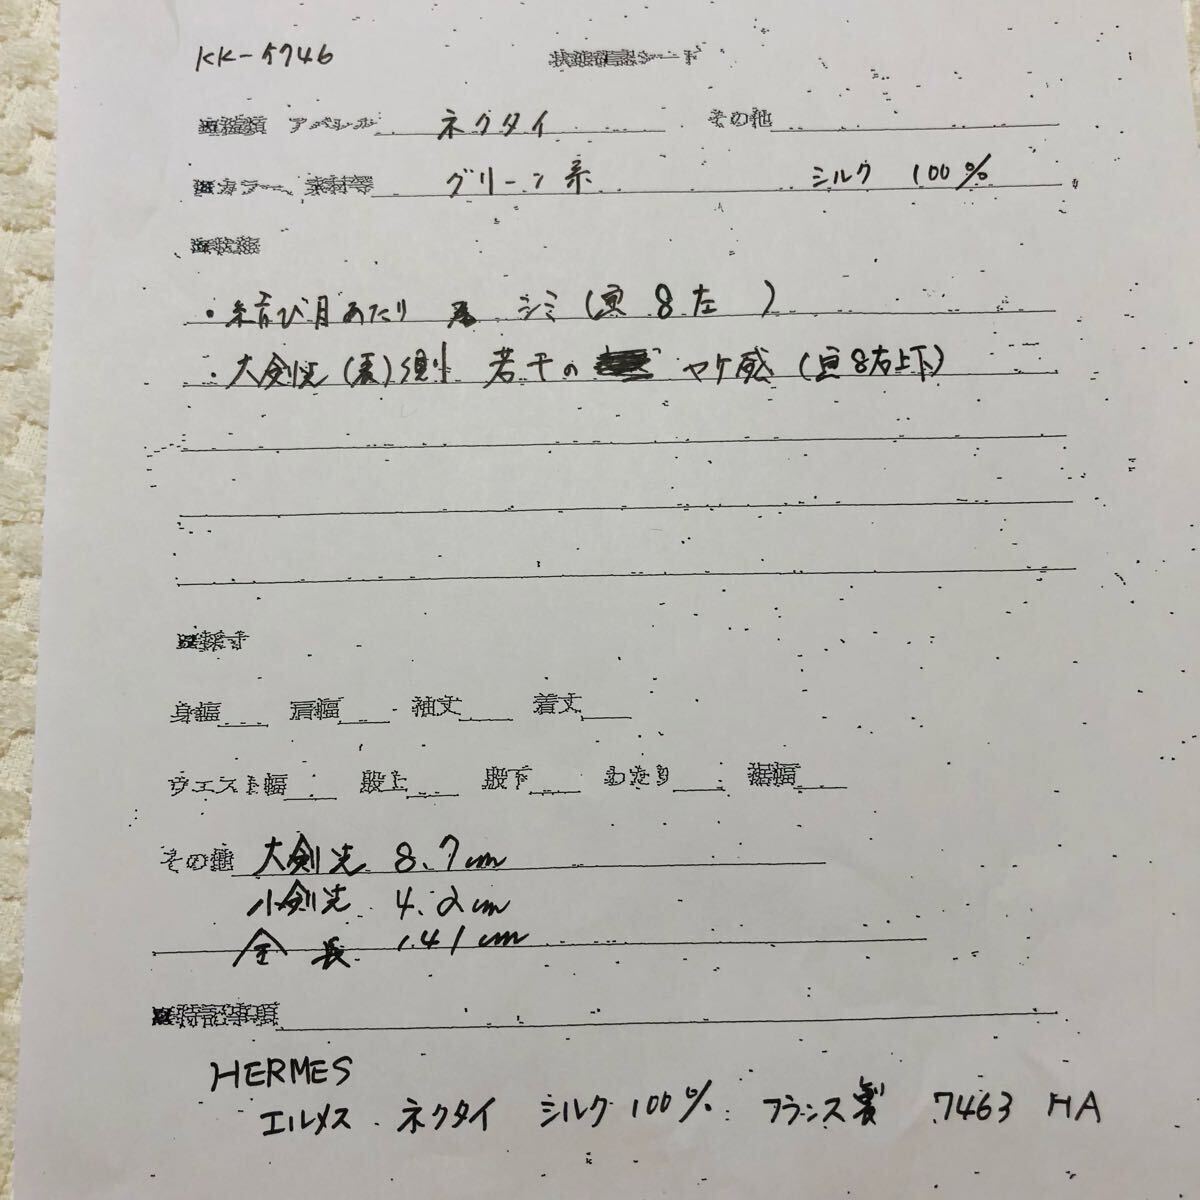 KK-5746 状態確認シート
■種類 アパレル ネクタイ その他
■カラー、素材等 グリーン系 シルク 100%
■状態
・結び目あたり シミ(画8左)
・大剣先(裏)側 若干の ヤケ感(画8右上下)
■採寸
身幅 肩幅 袖丈 着丈
ウエスト幅 股上 股下 わたり 裾幅
その他 大剣先 8.7cm
小剣先 4.2cm
全長 141cm
■特記事項
HERMES
エルメス ネクタイ シルク100% フランス製 7463 HA